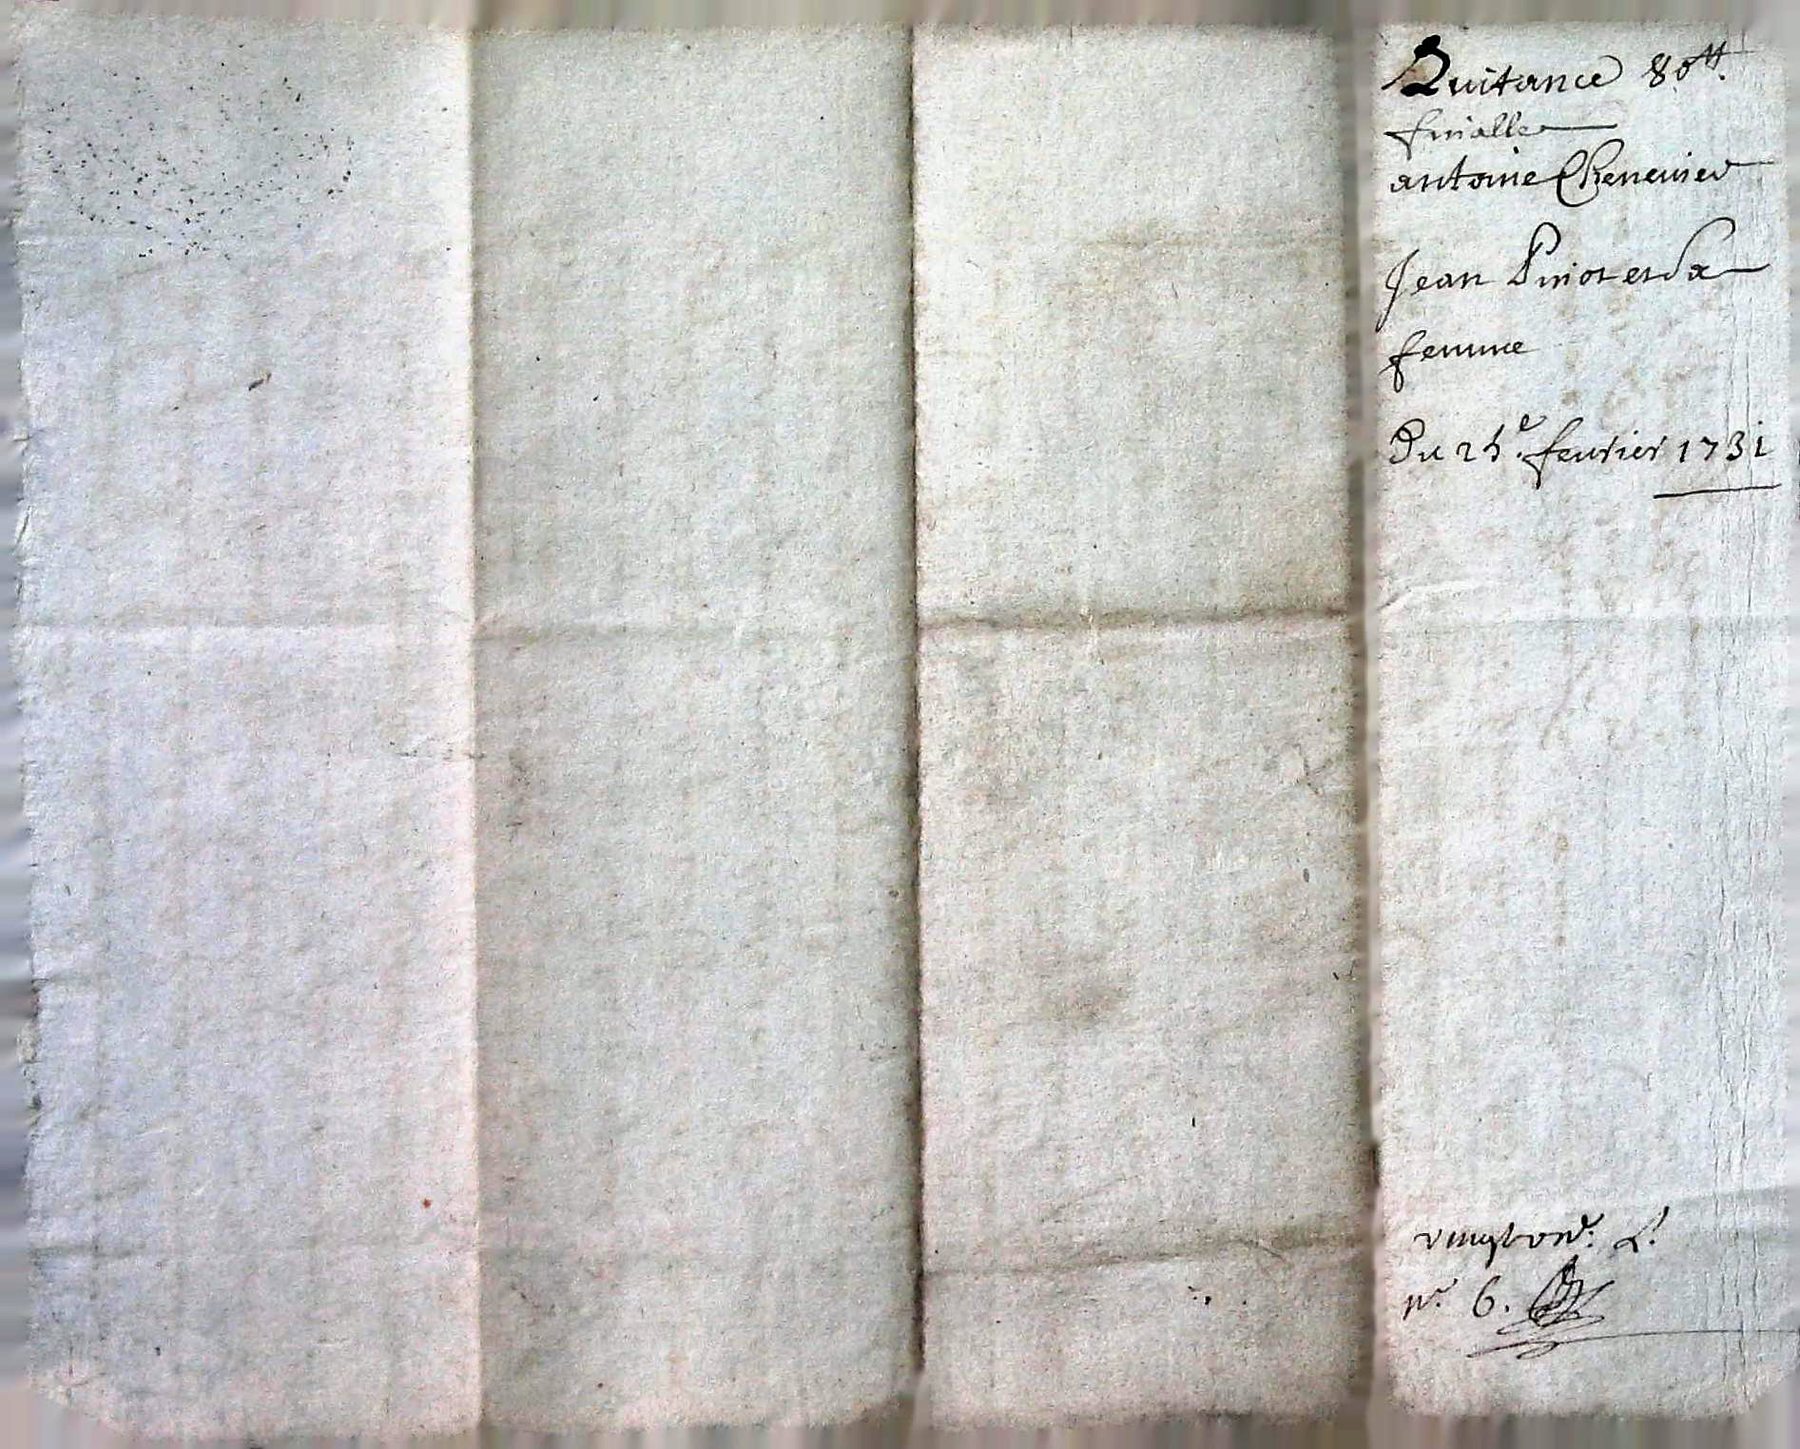 Quitance 80ᵗᵗ.
finalle
antoine Chenevier
Jean Pinot et sa
femme
Du 25ᵉ. fevrier 1731
nᵉ. 6.